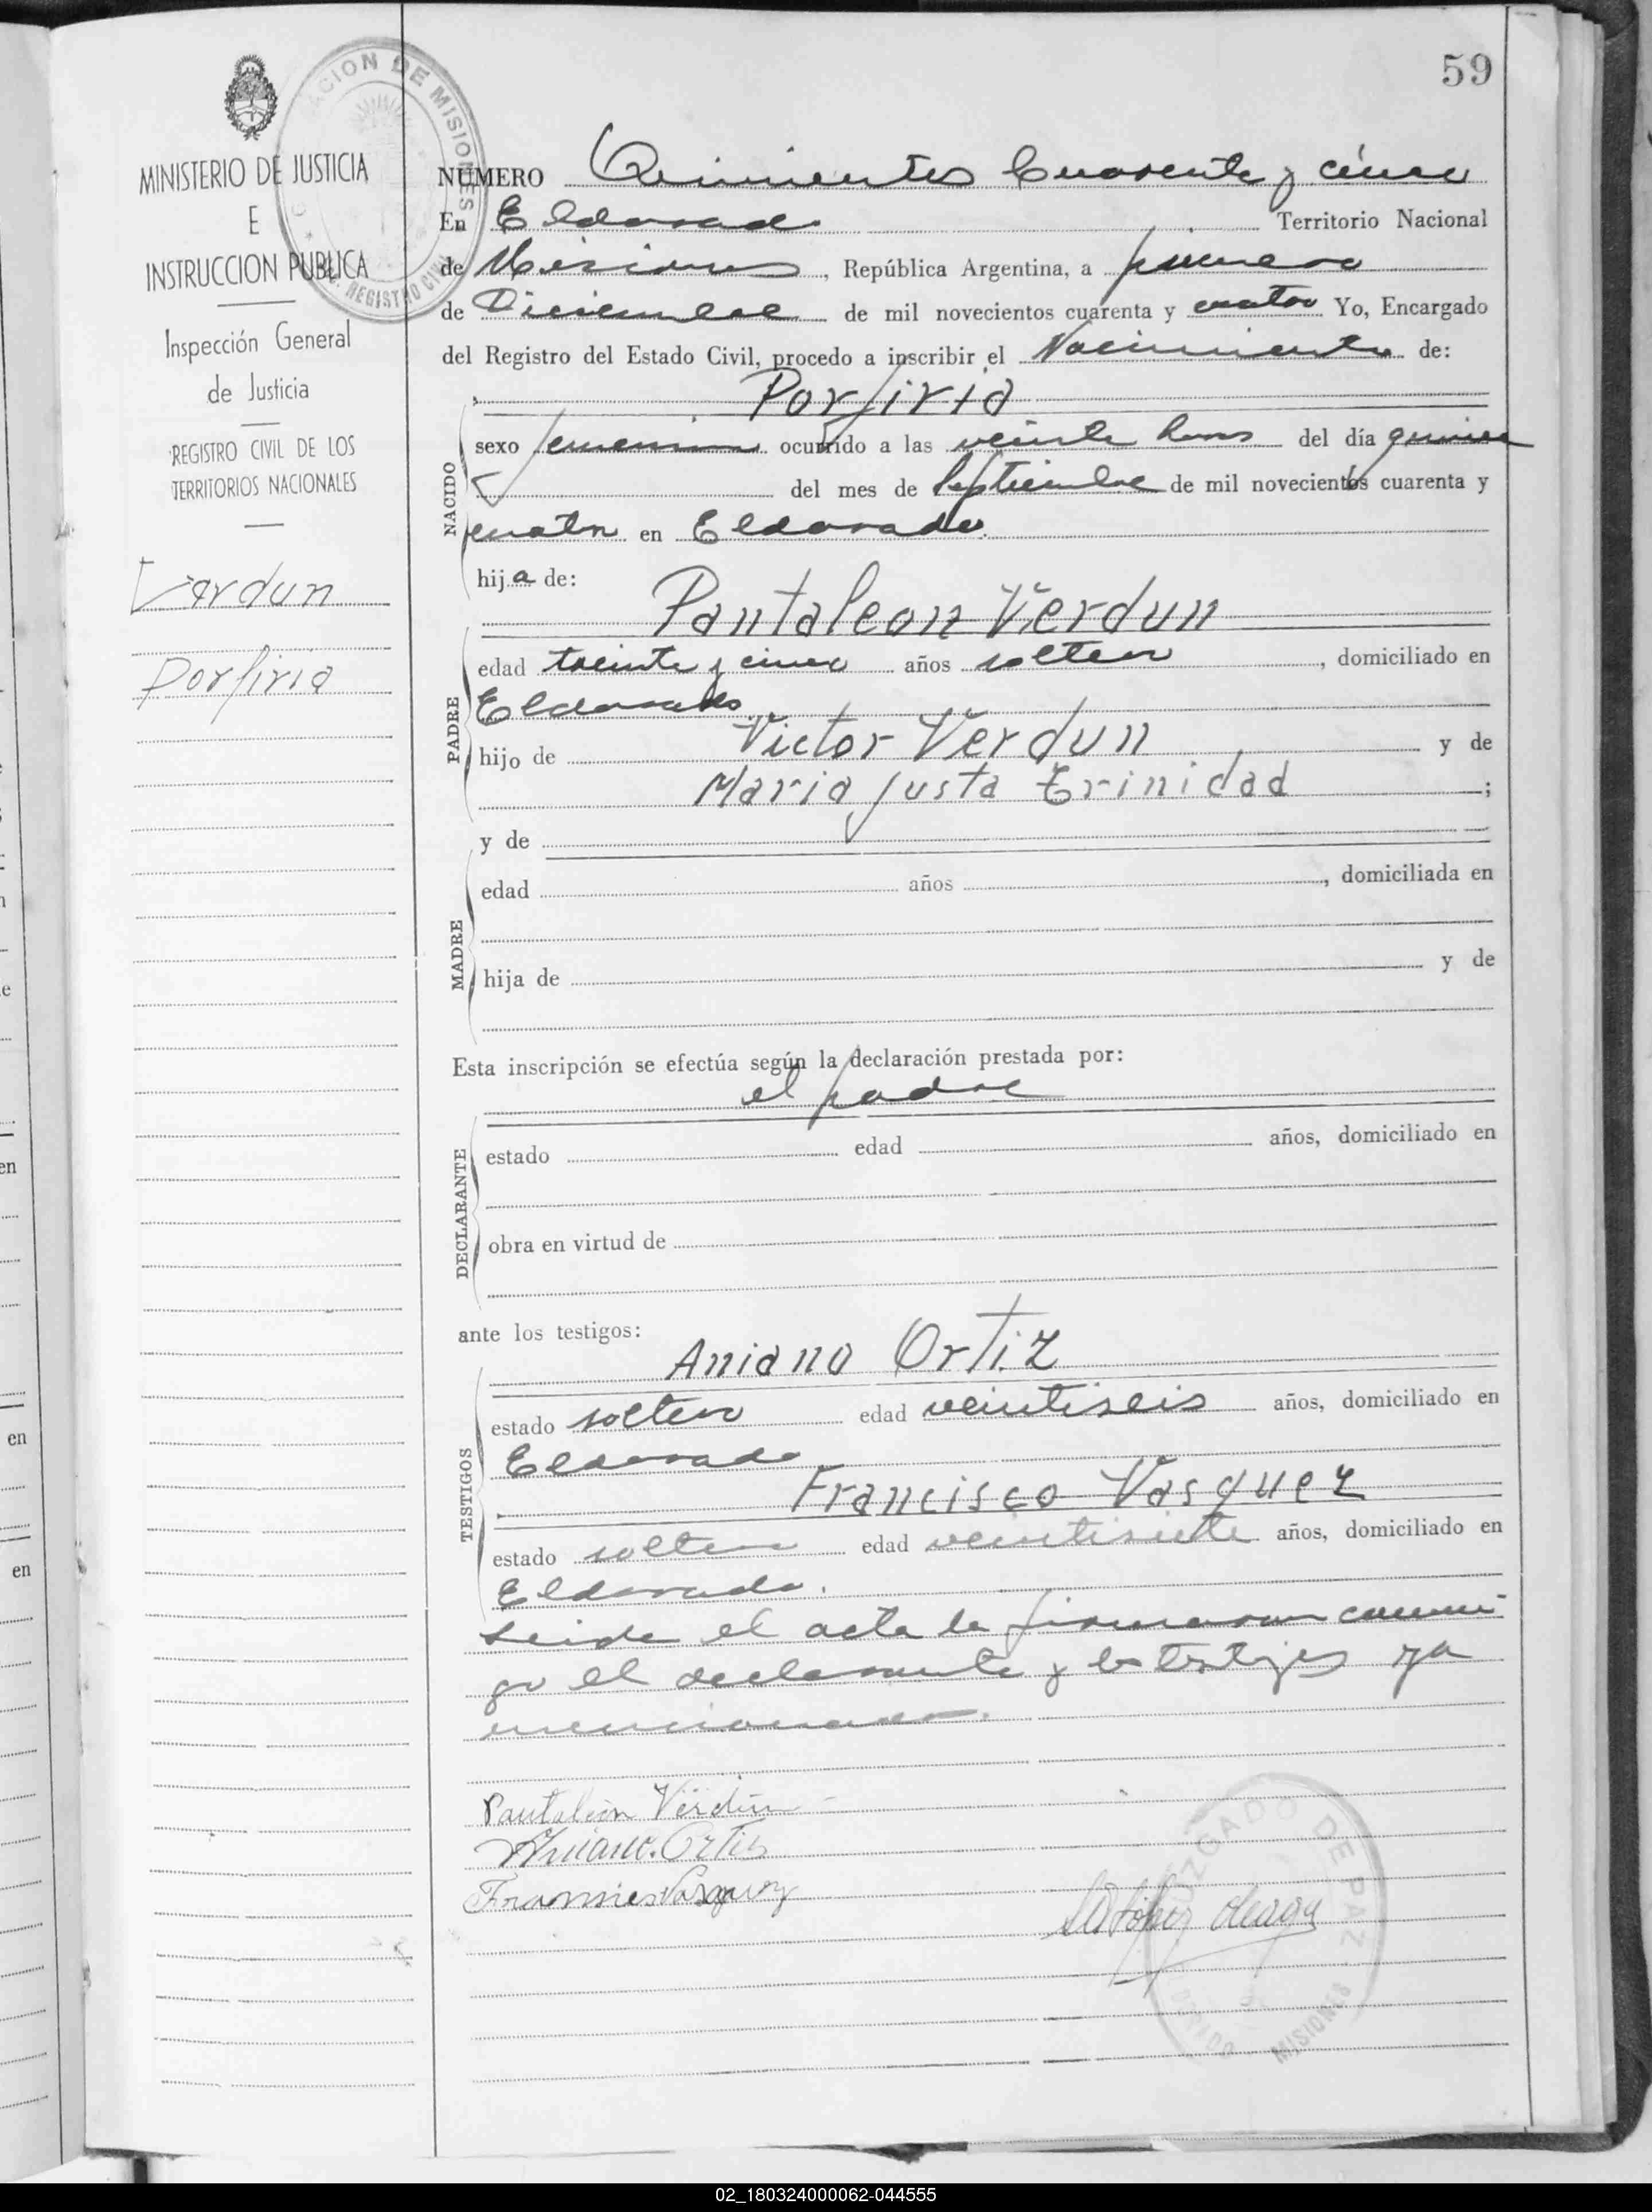 59
MINISTERIO DE JUSTICIA
E
INSTRUCCION PUBLICA
Inspección General
de Justicia
REGISTRO CIVIL DE LOS
TERRITORIOS NACIONALES
Verdun
Porfiria
NÚMERO Quinientos Cuarenta y cinco
En Eldorado Territorio Nacional
de Misiones, República Argentina, a primero
de Diciembre de mil novecientos cuarenta y cuatro Yo, Encargado
del Registro del Estado Civil, procedo a inscribir el Nacimiento de:
Porfiria
NACIDO
sexo femenino ocurrido a las veinte horas del día quince
del mes de Septiembre de mil novecientos cuarenta y
cuatro en Eldorado.
hija de:
Pantaleon Verdun
PADRE
edad treinta y cinco años soltero, domiciliado en
Eldorado
hijo de Victor Verdun y de
Maria Justa Trinidad;
y de
MADRE
edad años, domiciliada en
hija de y de
Esta inscripción se efectúa según la declaración prestada por:
el padre
DECLARANTE
estado edad años, domiciliado en
obra en virtud de
ante los testigos:
Aniano Ortiz
TESTIGOS
estado soltero edad veintiseis años, domiciliado en
Eldorado
Francisco Vasquez
estado soltero edad veintisiete años, domiciliado en
Eldorado.
Leida el acta la firmaron conmi
go el declarante y los testigos ya
mencionados.
Pantaleón Verdún
Aniano Ortiz
Francisco Vasquez
JUZGADO DE PAZ
MISIONES
02_180324000062-044555